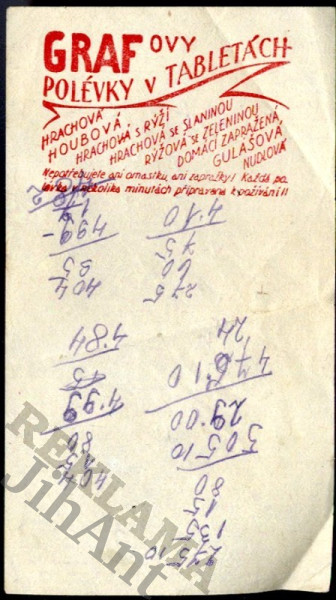 GRAFOVY
POLÉVKY V TABLETÁCH
HRACHOVÁ
HOUBOVÁ,
HRACHOVÁ S RÝŽÍ
HRACHOVÁ SE SLANINOU
RÝŽOVÁ SE ZELENINOU
DOMÁCÍ ZAPRAŽENÁ,
GULAŠOVÁ
NUDLOVÁ
Nepotřebujete ani omastku, ani zápražky! Každá po-
lévka v několika minutách připravena k požívání!!
275 10
135
15
80
505 10
29·00
476 10
24
404
80
4.99
15
4·84
275
60
75
4·10
404
95
499-
REKLAMA
JihAnt